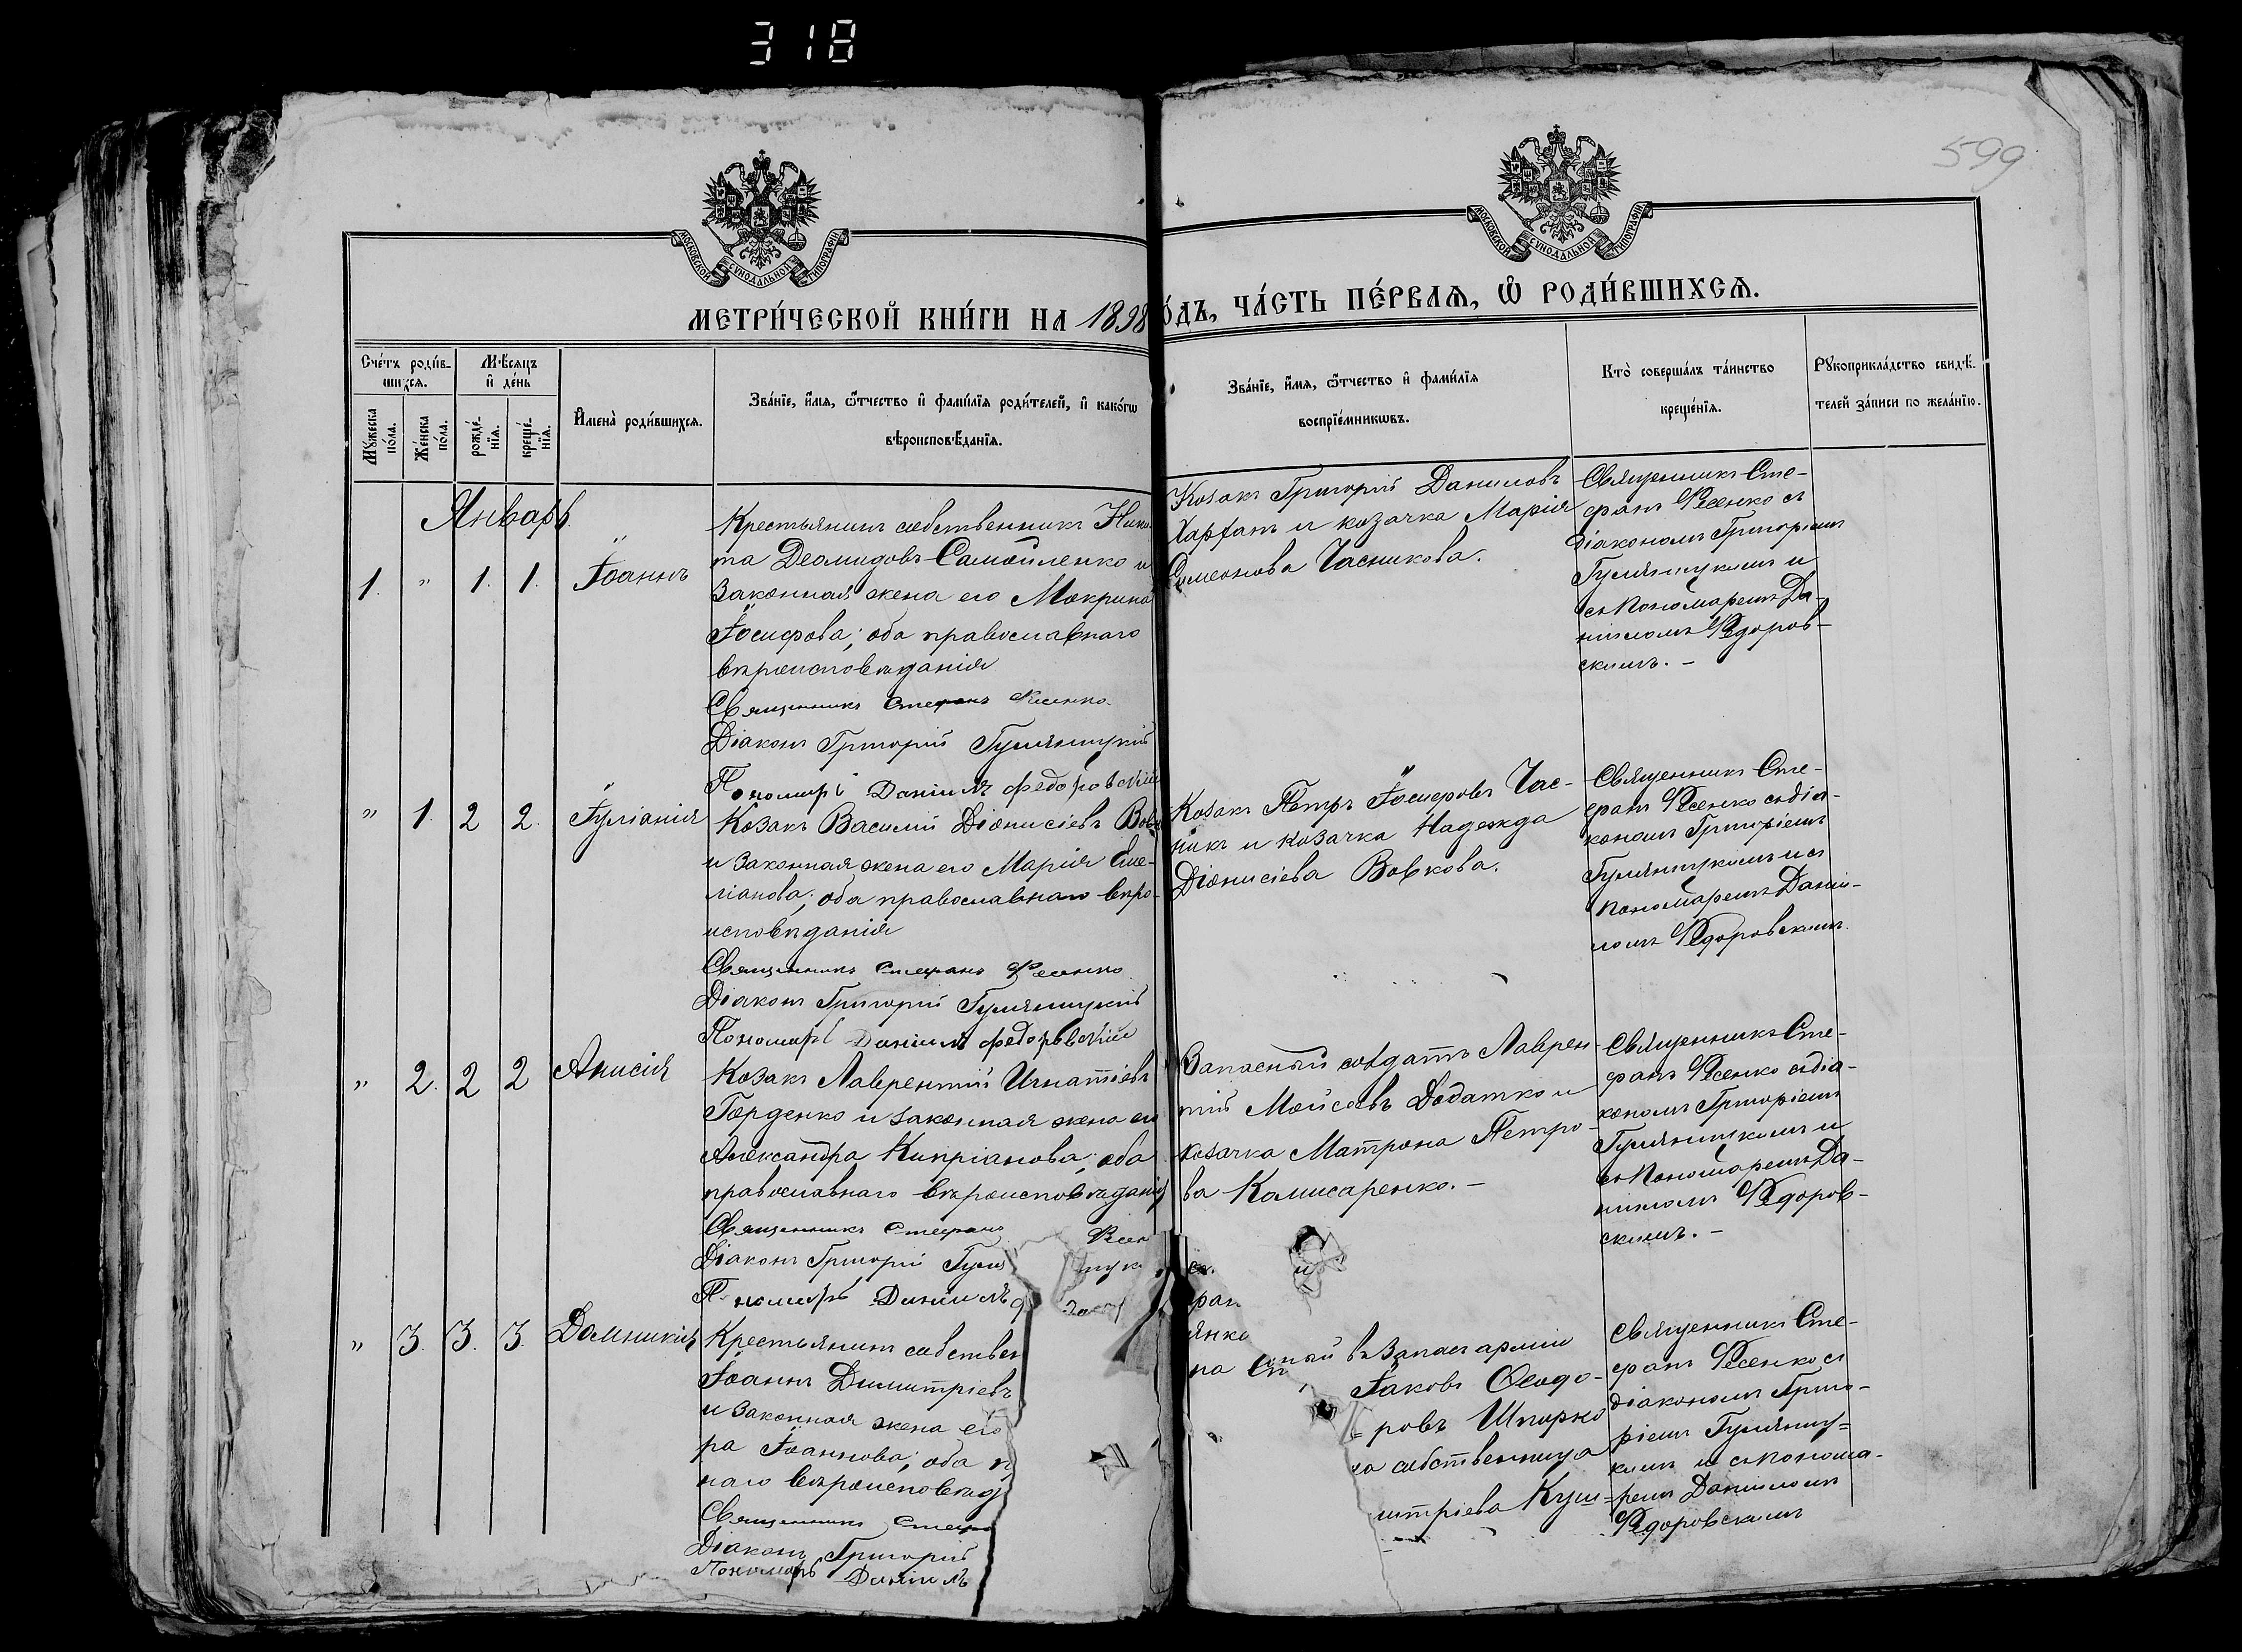 318
599
МОСКОВСКОЙ СѴНОДАЛЬНОЙ ТИПОГРАФІИ
МОСКОВСКОЙ СѴНОДАЛЬНОЙ ТИПОГРАФІИ
МЕТРИ́ЧЕСКОЙ КНИ́ГИ НА 1898
О́ДЪ, ЧА́СТЬ ПЕ́РВАѦ, Ѡ҆ РОДИ́ВШИХСѦ.
Сче́тъ роди́в-
шихсѧ.
Мꙋ́жеска по́ла.
Же́нска по́ла.
Мѣ́сѧцъ
и҆ де́нь
рожде́-
нїѧ.
креще́-
нїѧ.
И҆мена̀ роди́вшихсѧ.
Зва́нїе, и҆́мѧ, ѻ҆́тчество и҆ фами́лїѧ роди́телей, и҆ како́гѡ
вѣроисповѣ́данїѧ.
Зва́нїе, и҆́мѧ, ѻ҆́тчество и҆ фами́лїѧ
воспрїе́мникѡвъ.
Кто̀ соверша́лъ та́инство
креще́нїѧ.
Рꙋкоприкла́дство свидѣ́-
телей за́писи по жела́нїю.
Январь
1. " 1. 1. Іоаннъ
Крестьянинъ собственникъ Ники-
та Деомидовъ Самойленко и
законная жена его Мокрина
Іосифова; оба православнаго
вѣроисповѣданія
Священникъ Стефанъ Фесенко.
Діаконъ Григорій Гуляницкій
Пономарь Даніилъ Федоровскій
Козакъ Григорій Даниловъ
Харханъ и козачка Марія
Симеонова Часникова.
Священникъ Сте-
фанъ Фесенко съ
діакономъ Григоріемъ
Гуляницкимъ и
съ пономаремъ Да-
ніиломъ Федоров-
скимъ. —
" 1. 2 2. Іуліанія
Козакъ Василій Діонисіевъ Вовк
и законная жена его Марія Еме-
ліанова; оба православнаго вѣро-
исповѣданія
Священникъ Стефанъ Фесенко
Діаконъ Григорій Гуляницкій
Пономарь Даніилъ Федоровскій
Козакъ Петръ Іосифовъ Час-
никъ и козачка Надежда
Діонисіева Вовкова.
Священникъ Сте-
фанъ Фесенко съ діа-
кономъ Григоріемъ
Гуляницкимъ и съ
пономаремъ Даніи-
ломъ Федоровскимъ.
" 2. 2 2 Анисія
Козакъ Лаврентій Игнатіевъ
Горденко и законная жена его
Александра Кипріанова; оба
православнаго вѣроисповѣданія
Священникъ Стефанъ Фесен
Діаконъ Григорій Гуля ницк
Пономарь Даніилъ
Запасный солдатъ Лаврен-
тій Мойсеевъ Додатко и
козачка Матрона Петро-
ва Комисаренко. —
Священникъ Сте-
фанъ Фесенко съ діа-
кономъ Григоріемъ
Гуляницкимъ и
съ пономаремъ Да-
ніиломъ Федоров-
скимъ. —
" 3. 3. 3. Домникія
Крестьянинъ собствен
Іоаннъ Димитріевъ
и законная жена его
ра Іоаннова; оба п
наго вѣроисповѣд
Священникъ Стефа
Діаконъ Григорій
Пономарь Даніилъ
въ запасъ арміи
Іаковъ Ѳеодо-
ровъ Шпорко
ка собственница
митріева Куш-
Священникъ Сте-
фанъ Фесенко съ
діакономъ Григо-
ріемъ Гуляниц-
кимъ и съ понома-
ремъ Даніиломъ
Федоровскимъ